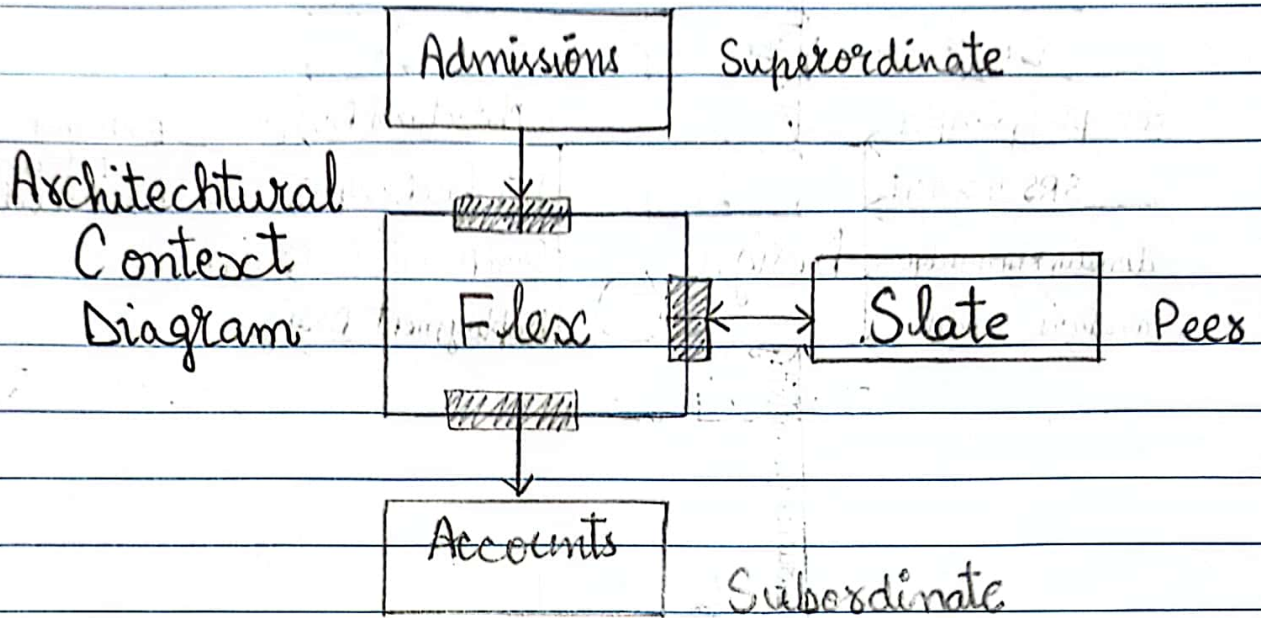 Admissions Superordinate
Architechtural
Context
Diagram
Flex
Slate Peer
Accounts
Subordinate